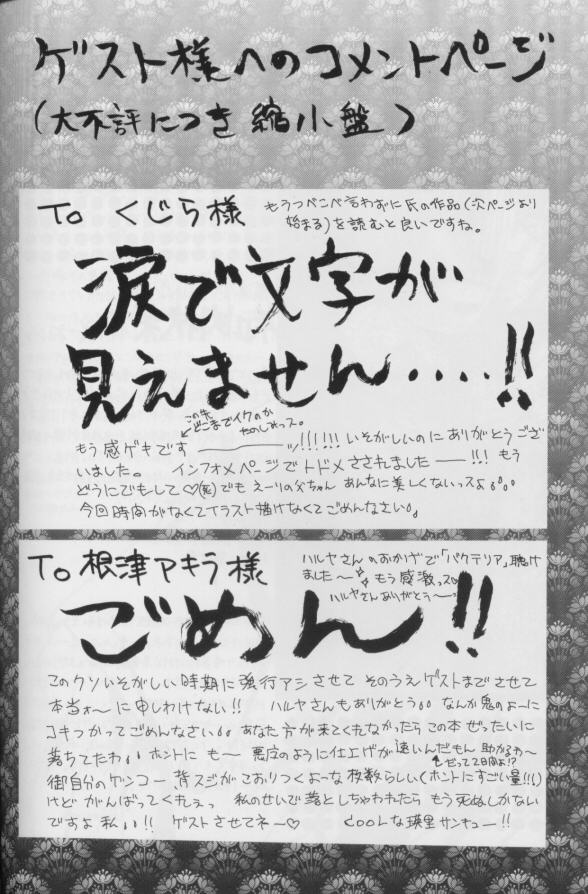 ゲスト様へのコメントページ
(大不評につき縮小盤)
To くじら様
もうつべこべ言わずに氏の作品(次ページより
始まる)を読むと良いですね。
涙で文字が
見えません‥‥!!
この先
どこまでイクのか
もう感ゲキです ――ッ!!!!! いそがしいのにありがとうござ
いました。 インフォメページでトドメさされました――!!! もう
どうにでもして♡(死)でも えーりの父ちゃん あんなに美しくないっスよ。。。
今回時間がなくてイラスト描けなくてごめんなさい。
To 根津アキラ様
ハルヤさんのおかげで「バクテリア」聴け
ました〜 もう感激っス
ハルヤさんありがとう〜
ごめん!!
このクソいそがしい時期に強行アシさせて そのうえゲストまでさせて
本当ォ〜に申しわけない!! ハルヤさんもありがとう。。 なんか鬼のよーに
コキつかってごめんなさい。。 あなた方が来てくれなかったら この本ぜったいに
落ちてたわ。。 ホントに も〜 悪魔のように仕上げが速いんだもん 助かるわ〜
だって2日間よ!?
御自分のゲンコー、背スジがこおりつくよーな枚数らしい(ホントにすごい量!!)
けど がんばってくれぇっ 私のせいで落としちゃわれたら もう死ぬしかない
ですよ 私ぃ!! ゲストさせてネー♡ Coolな瑛里サンキュー!!